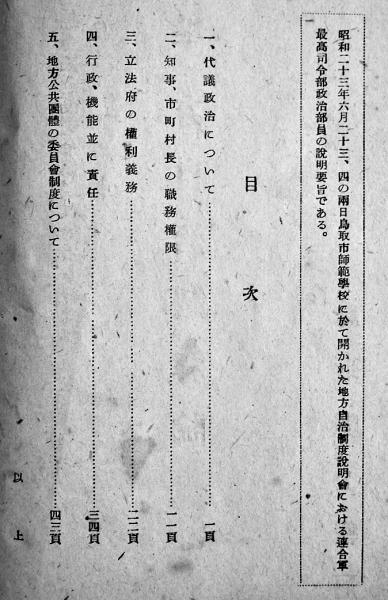 昭和二十三年六月二十三、四の兩日鳥取市師範學校に於て開かれた地方自治制度說明會における連合軍
最高司令部政治部員の說明要旨である。
目次
一、代議政治について……………一頁
二、知事、市町村長の職務權限……………一一頁
三、立法府の權利義務……………二二頁
四、行政、機能並に責任……………三四頁
五、地方公共團體の委員會制度について……………四三頁
以上